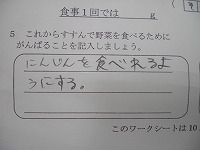 食事1回では g
5 これからすすんで野菜を食べるために
がんばることを記入しましょう。
にんじんを食べれるよ
うにする。
このワークシートは10